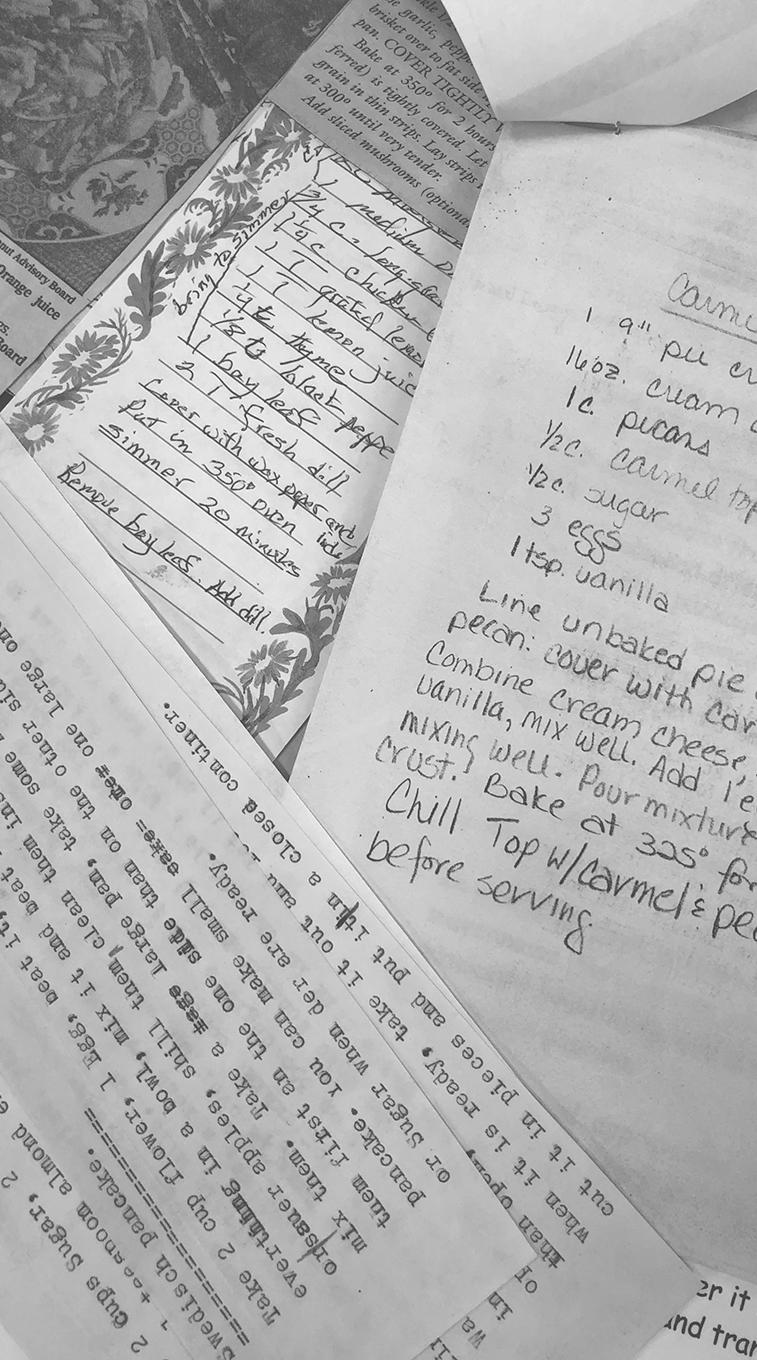 brisket over to fat side
pan. COVER TIGHTLY
Bake at 350° for 2 hour
ferred) is tightly covered. Let
grain in thin strips. Lay strips
at 300° until very tender.
Add sliced mushrooms (optional
Advisory Board
Orange juice
Board
1 medium
3/4 c. long grain
chicken
1 T grated lemo
1 T lemon juic
1/4 t. thyme
1/8 t. black peppe
1 bay leaf
2 T fresh dill
bring to simmer
Cover with wax paper and
Put in 350° oven
simmer 20 minutes
Remove bay leaf. Add dill.
Carme
1 9" pie cr
16oz. cream c
1c. pecans
1/2c. carmel top
1/2c. sugar
3 eggs
1 tsp. vanilla
Line unbaked pie
pecan. cover with car
Combine cream cheese,
vanilla, mix well. Add 1 e
mixing well. Pour mixture
crust. Bake at 325° for
Chill Top w/carmel & pe
before serving
2 cups Sugar, 2
almond
Swedisch pancake.
==================
Take 2 cup flower, 1 Egg, beat it,
everthing in a bowl, mix it and beat
orsauer apples, shill them, clean them
mix them. Take a large pan, take some
them first an the one side than on the other sid
pancake. You can make small one one large one
or Sugar when der are ready.
than open,
when it is ready, take it out and
cut it in pieces and put it in a closed continer.
er it
and tran